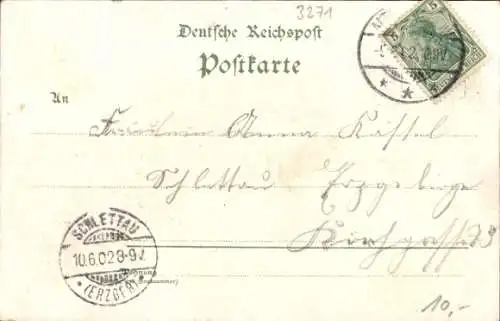 3271
Deutsche Reichspost
Postkarte
An
Fräulein Anna Kässel
Schlettau Erzgebirge
Kirchgasse
SCHLETTAU
10.6.02 8-9V.
* (ERZGEB) *
10,-